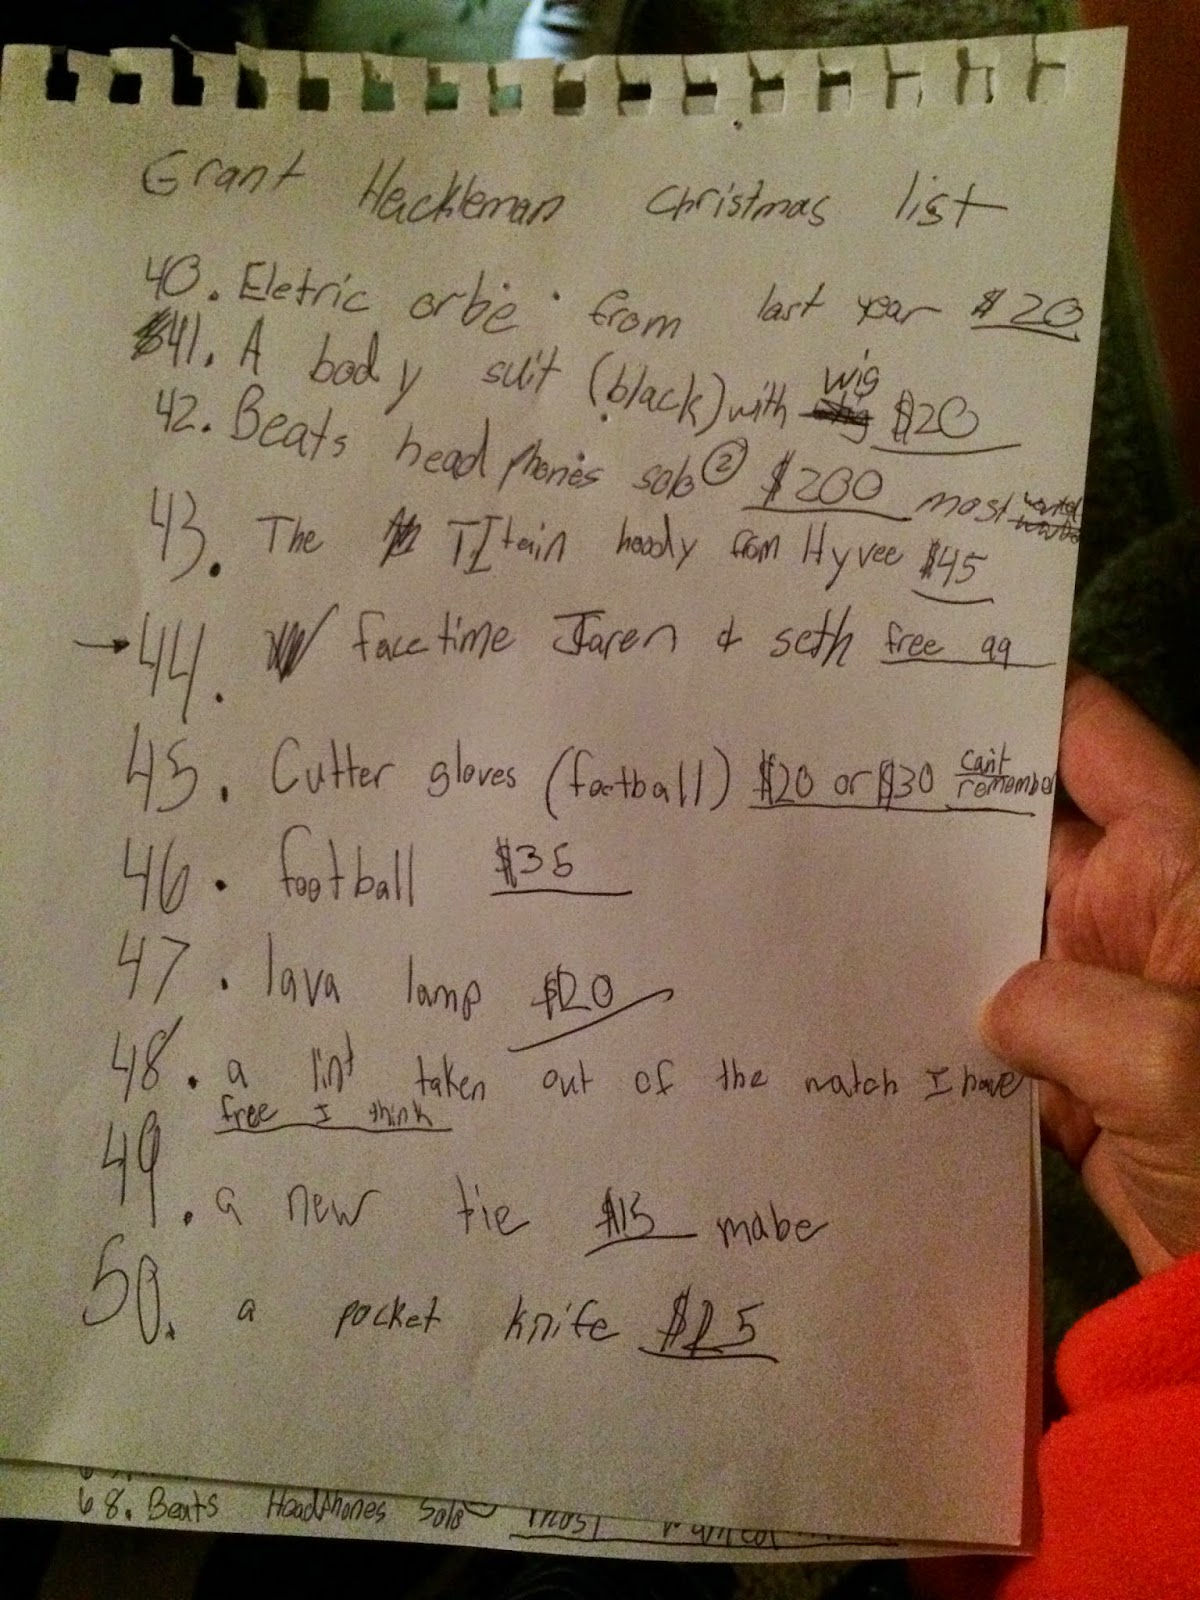 Grant Hackleman christmas list
40. Eletric orbe from last year $20
41. A body suit (black) with wig $20
42. Beats head phones solo 2 $200 most wanted
43. The TItain hoody from Hyvee $45
→ 44. facetime Jaren & seth free qq
45. Cutter gloves (football) $20 or $30 can't remember
46. football $35
47. lava lamp $20
48. a lint taken out of the watch I have
free I think
49. a new tie $15 mabe
50. a pocket knife $25
68. Beats HeadPhones Solo most wanted